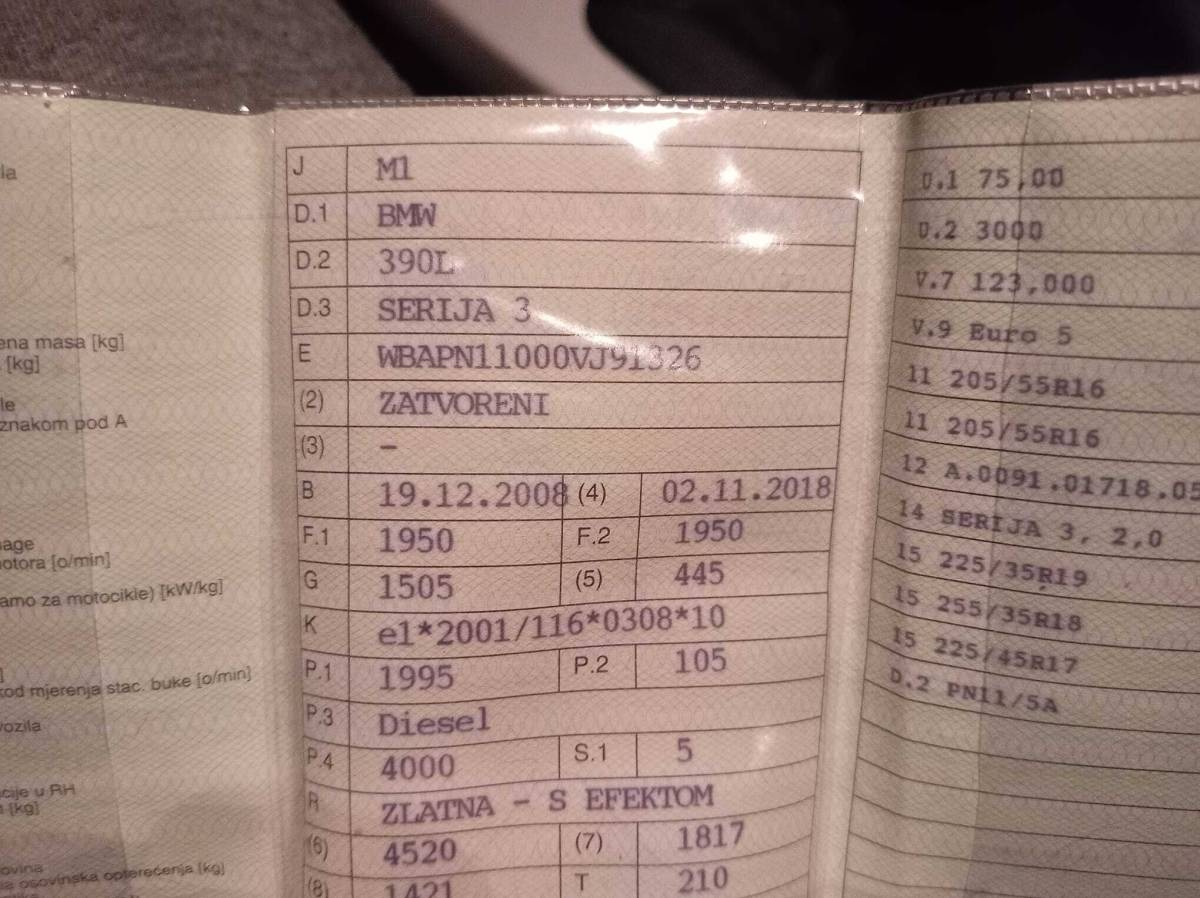 la
ena masa [kg]
[kg]
le
znakom pod A
nage
notora [o/min]
amo za motocikle) [kW/kg]
]
kod mjerenja stac. buke [o/min]
vozila
cije u RH
[kg]
ovina
na osovinska opterećenja [kg]
J M1
D.1 BMW
D.2 390L
D.3 SERIJA 3
E WBAPN11000VJ91326
(2) ZATVORENI
(3) –
B 19.12.2008 (4) 02.11.2018
F.1 1950 F.2 1950
G 1505 (5) 445
K e1*2001/116*0308*10
P.1 1995 P.2 105
P.3 Diesel
P.4 4000 S.1 5
R ZLATNA - S EFEKTOM
(6) 4520 (7) 1817
(8) 1421 T 210
U.1 75,00
U.2 3000
V.7 123,000
V.9 Euro 5
11 205/55R16
11 205/55R16
12 A.0091.01718.05
14 SERIJA 3, 2,0
15 225/35R19
15 255/35R18
15 225/45R17
D.2 PN11/5A